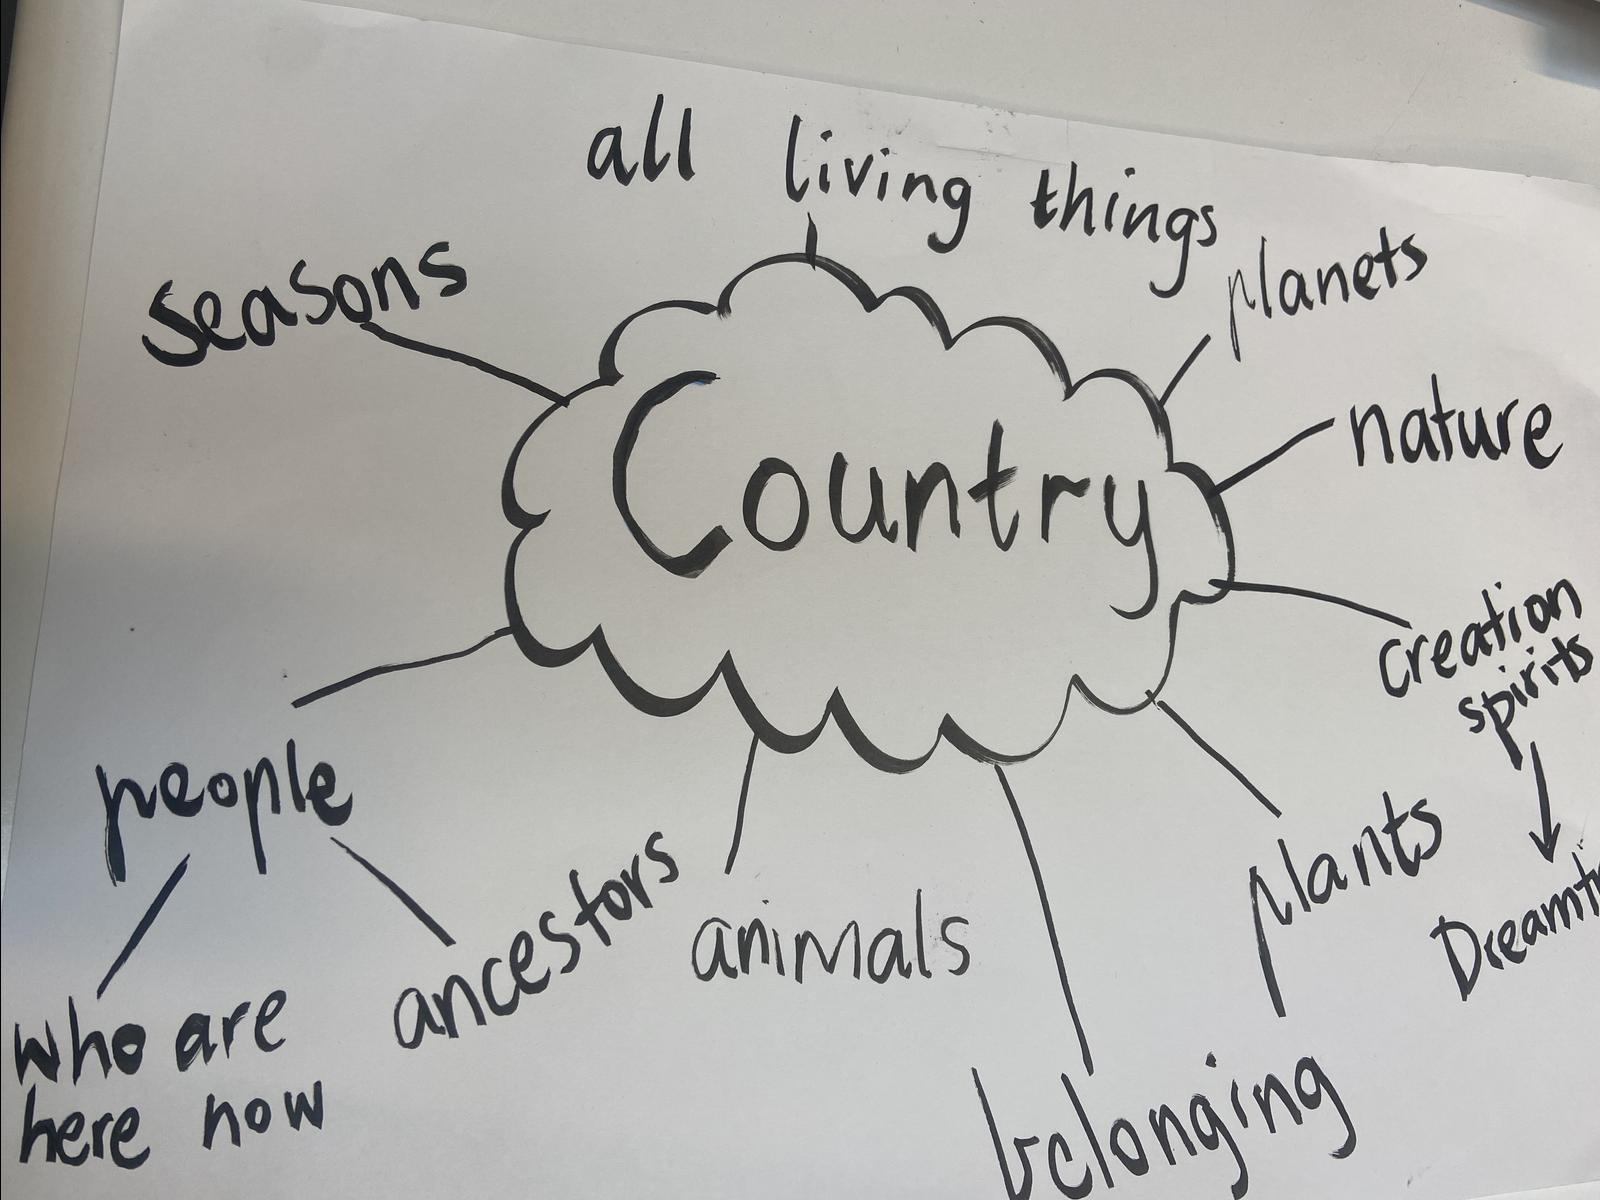 all living things
planets
seasons
nature
Country
creation
spirits
people
plants
ancestors
animals
who are
here now
belonging